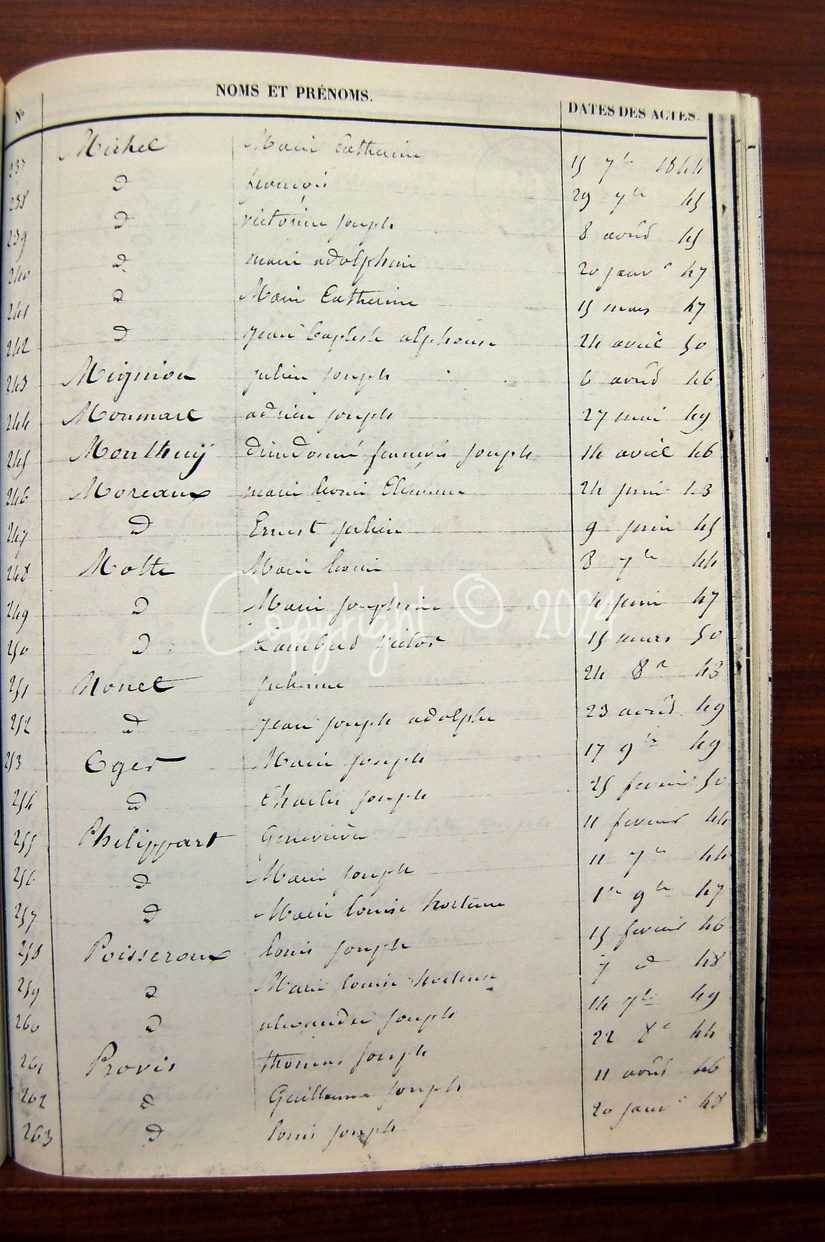 N° NOMS ET PRÉNOMS. DATES DES ACTES.
237 Michel Marie Catherine 15 7bre 1844
238 d françois 29 7bre 45
239 d victorine joseph 8 avril 45
240 d marie adolphine 20 janvr 47
241 d Marie Catherine 15 mars 47
242 d jean baptiste alphonse 24 avril 50
243 Mignion julien joseph 6 avril 46
244 Monmart adrien joseph 27 mai 49
245 Monthuÿ dieudonné françois joseph 14 avril 46
246 Moreaux marie léonie 24 juin 43
247 d Ernest julien 9 juin 45
248 Motte Marie louise 8 7bre 44
249 d Marie joséphine 4 juin 47
250 d Lambert Victor 15 mars 50
251 Nonet julienne 24 8bre 43
252 d jean joseph adolphe 23 avril 49
253 Oger Marie joseph 17 9bre 49
254 d Charles joseph 25 fevrier 50
255 Philippart Geneviève 11 fevrier 44
256 d Marie joseph 11 7bre 44
257 d Marie louise hortense 1er 9bre 47
258 Poisseroux louis joseph 15 fevrier 46
259 d Marie louise hortense 7 d 48
260 d alexandre joseph 14 7bre 49
261 Provis thomas joseph 22 8bre 44
262 d Guillaume joseph 11 avril 46
263 d louis joseph 20 janvr 48
Copyright © 2024